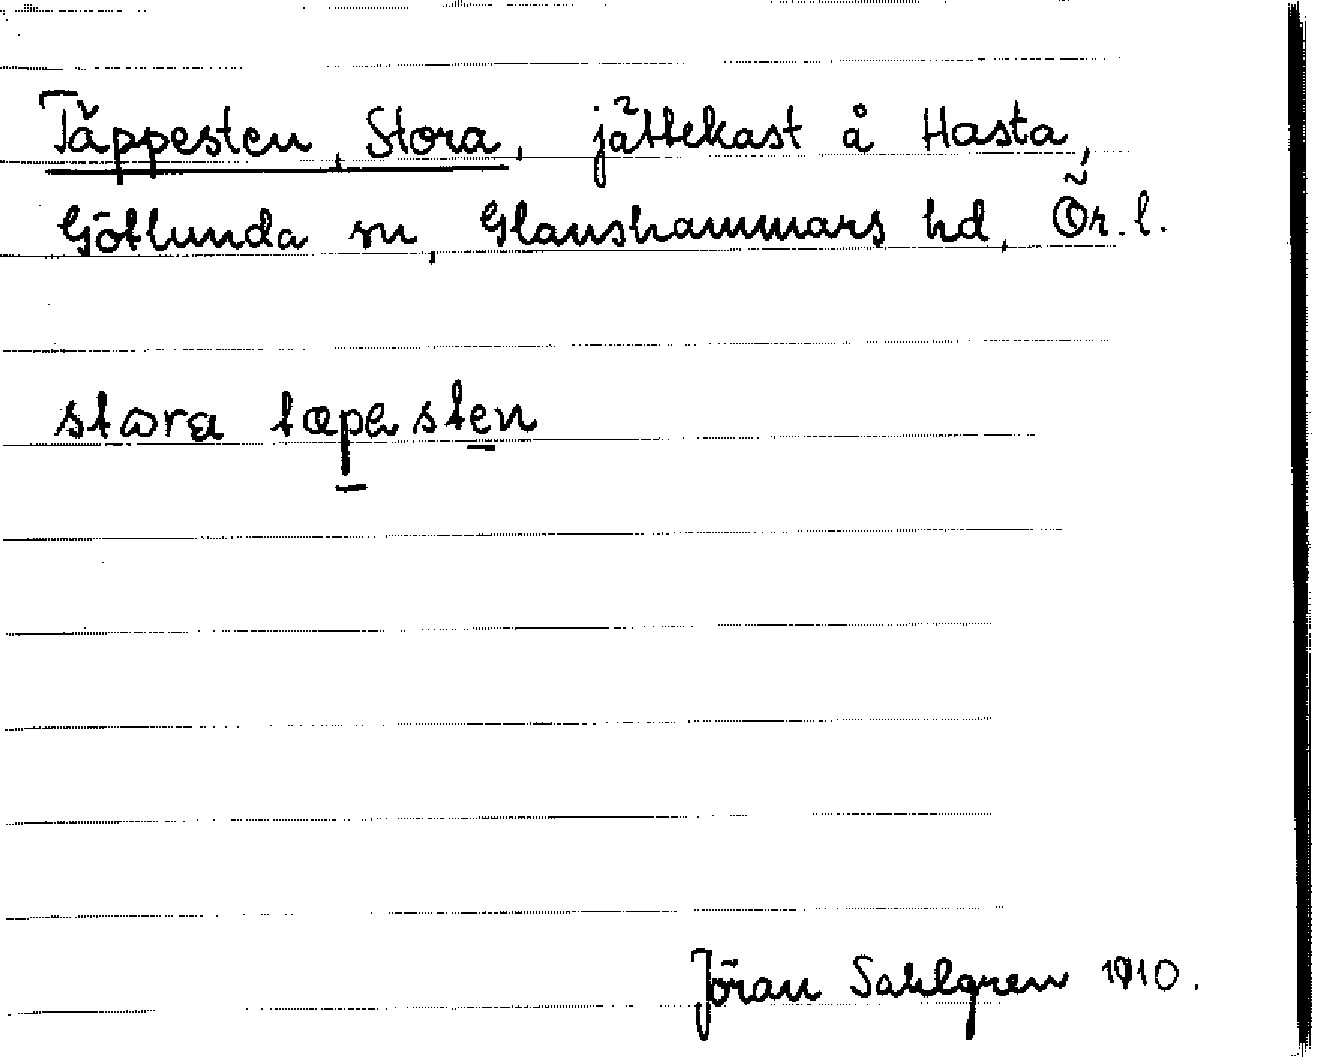 Täppesten, Stora, jättekast å Hasta,
Götlunda sn, Glanshammars hd, Ör. l.
stora tæpesten
Jöran Sahlgren 1910.